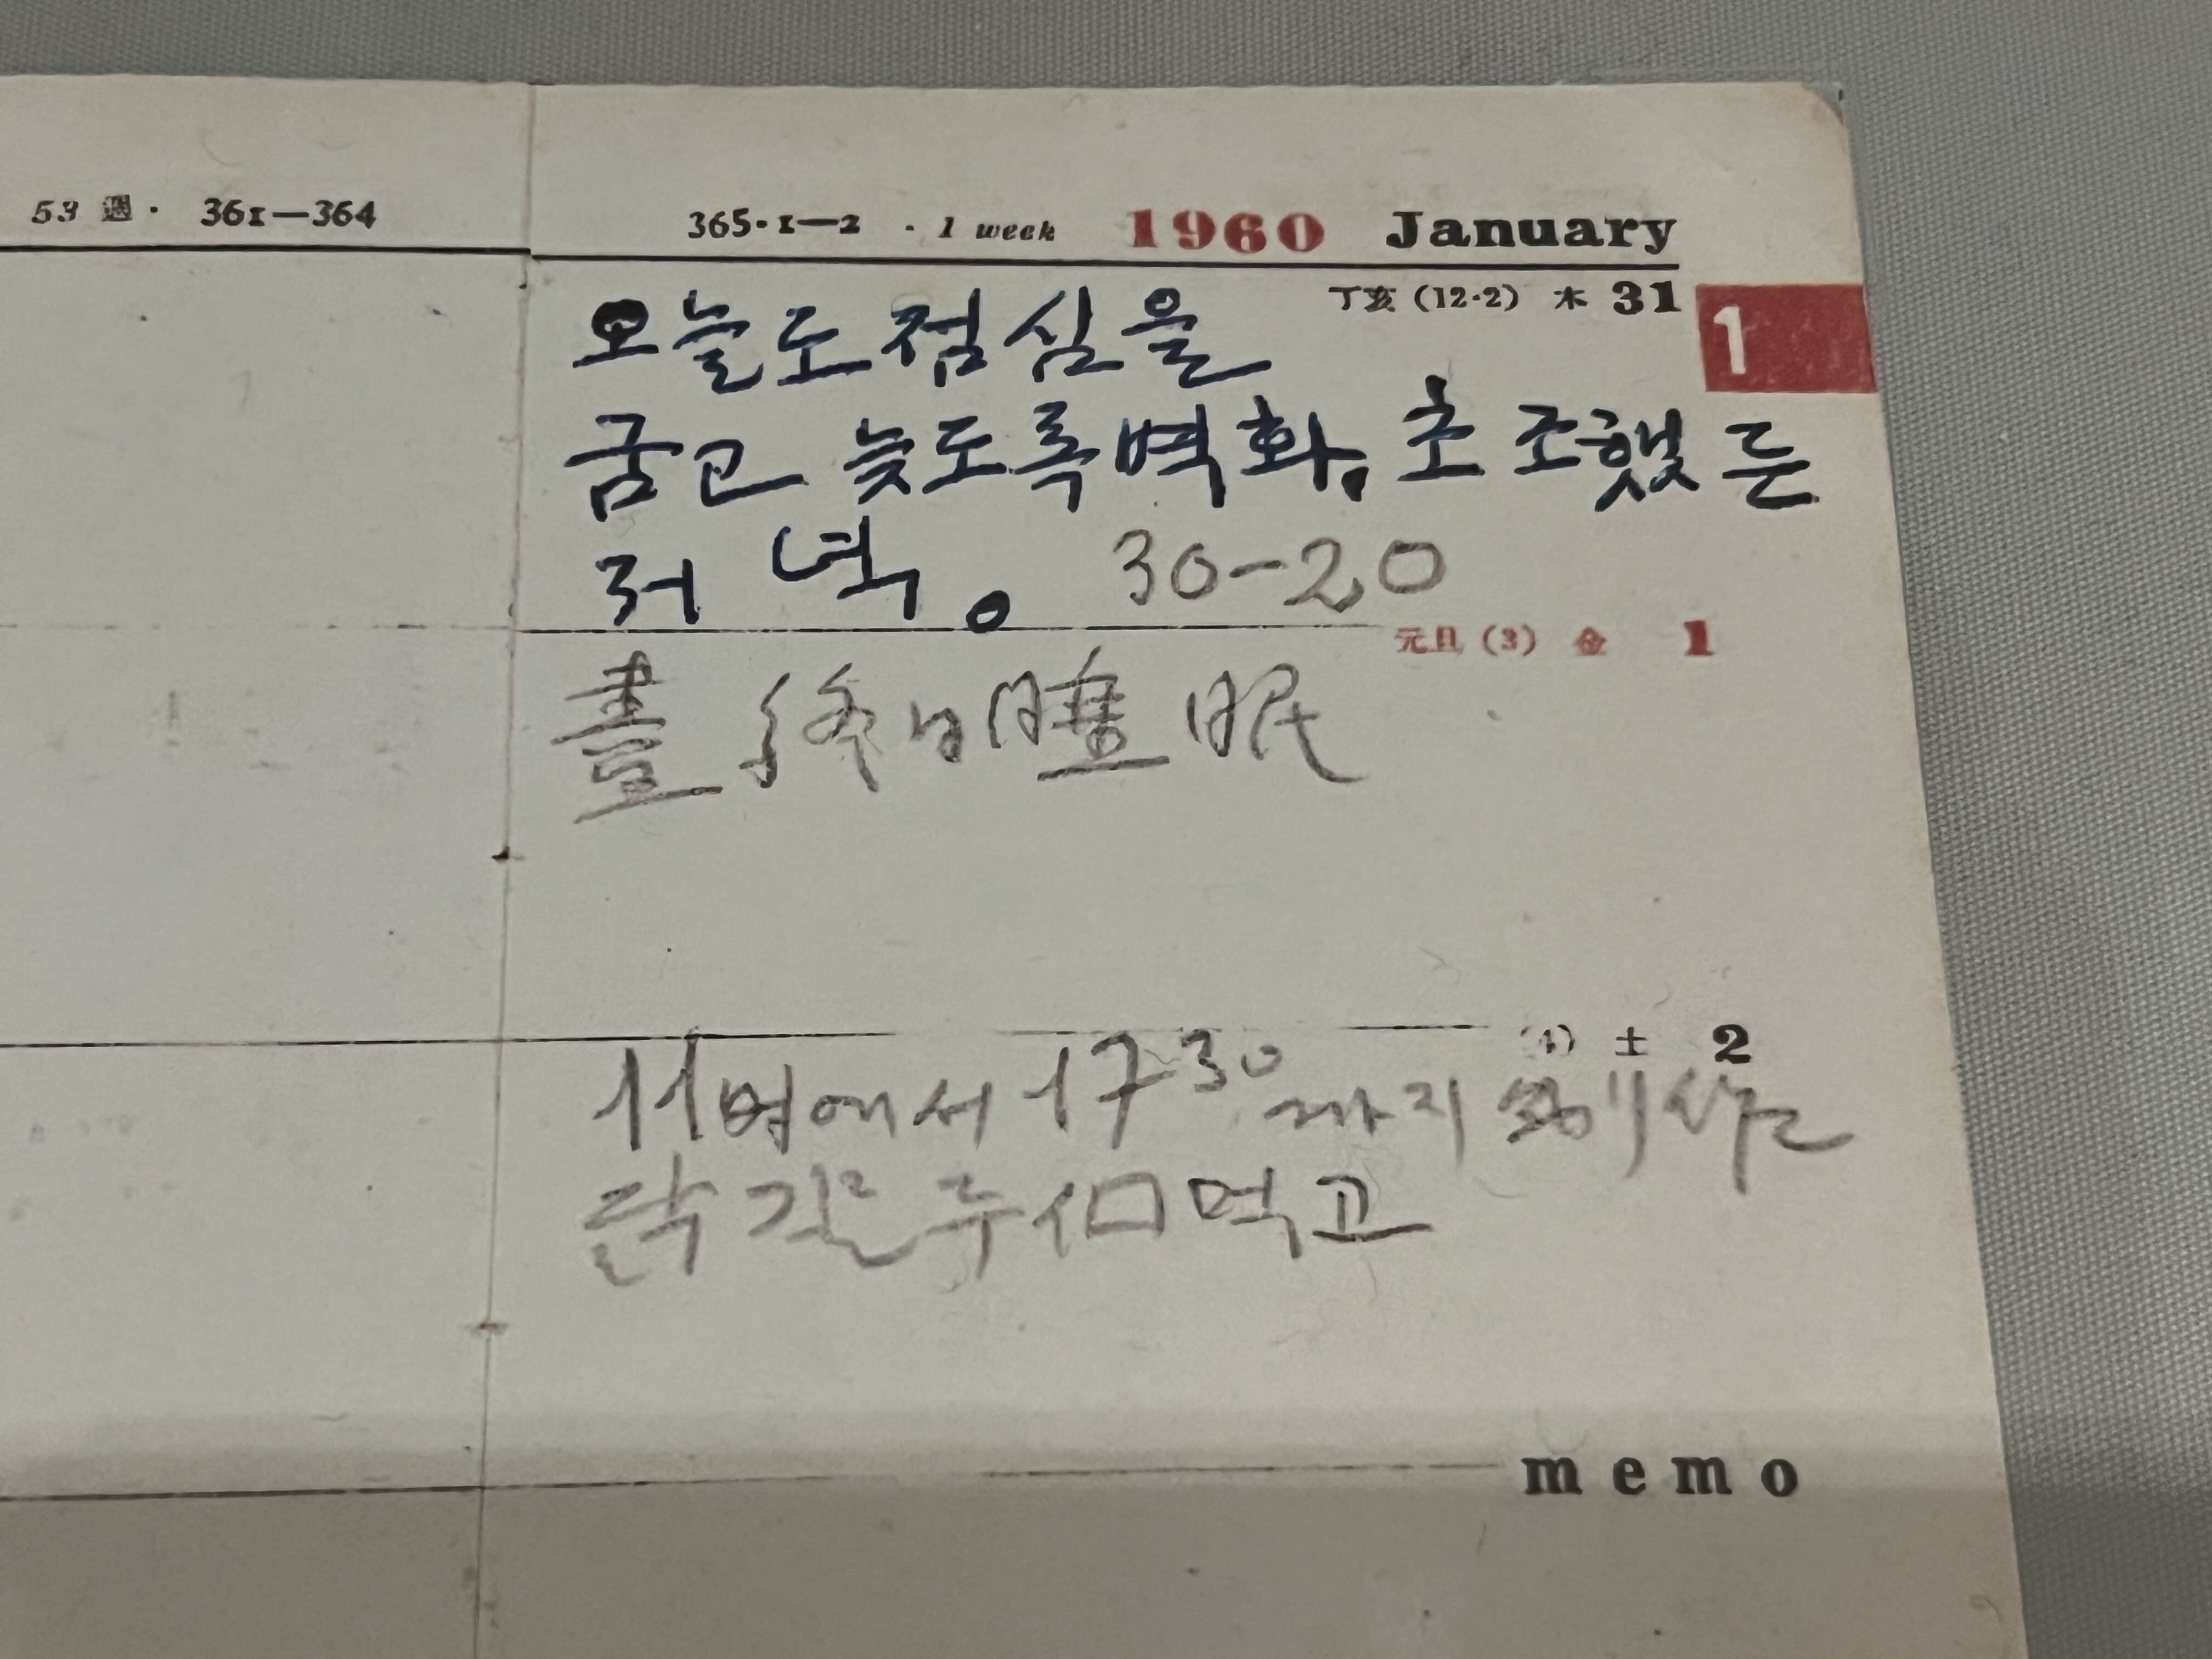 53 週 · 361—364
365·1—2 · 1 week 1960 January
丁亥 (12·2) 木 31
1
오늘도 점심을
굶고 늦도록 벽화, 초조했든
저녁。 30-20
元旦 (3) 金 1
晝 終日 睡眠
(4) 土 2
11명에서 17³⁰까지
닭길 두 個 먹고
memo